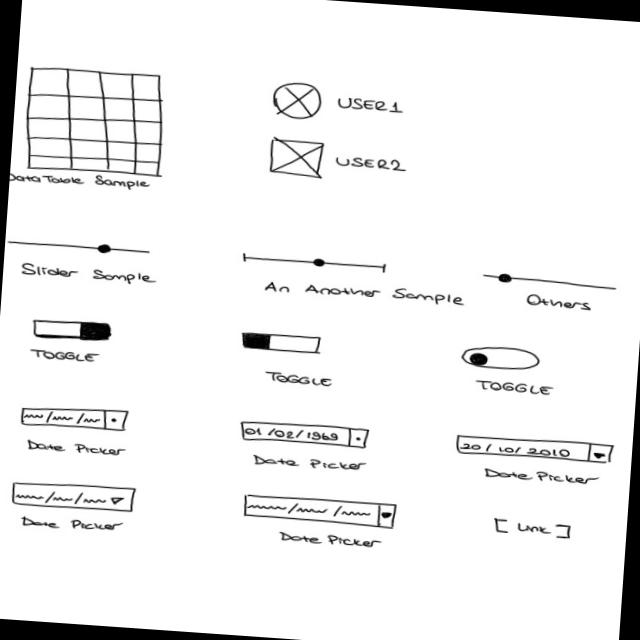 USER1
USER2
DataTable Sample
Slider Sample
An Another Sample
Others
TOGGLE
TOGGLE
TOGGLE
Date Picker
01/02/1969
Date Picker
20/10/2010
Date Picker
Date Picker
Date Picker
[ Link ]